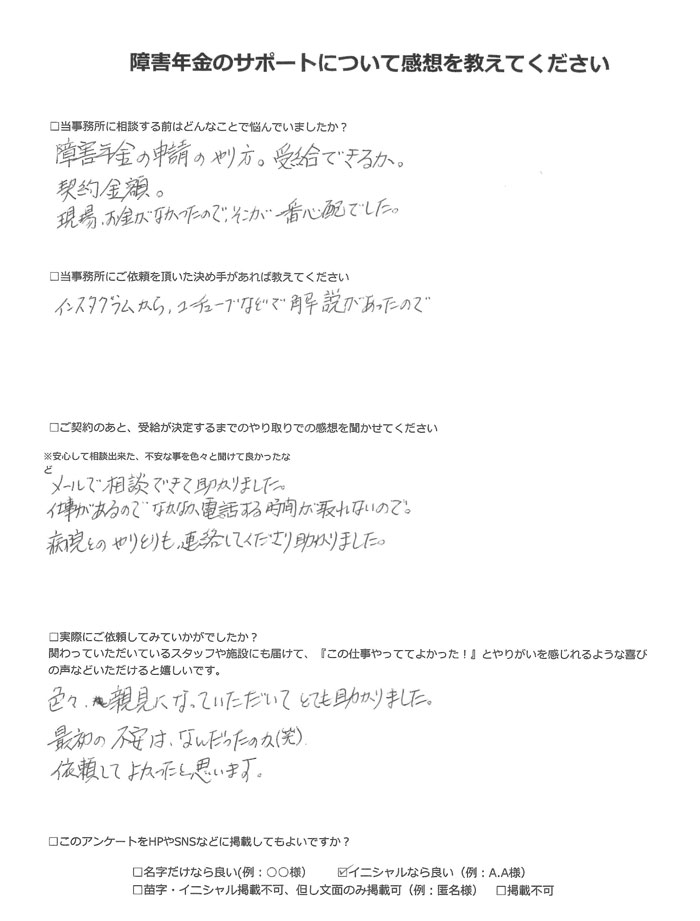 障害年金のサポートについて感想を教えてください
□当事務所に相談する前はどんなことで悩んでいましたか？
障害年金の申請のやり方。受給できるか。
契約金額。
現場、お金がなかったので、そこが一番心配でした。
□当事務所にご依頼を頂いた決め手があれば教えてください
インスタグラムから、ユーチューブなどで解説があったので
□ご契約のあと、受給が決定するまでのやり取りでの感想を聞かせてください
※安心して相談出来た、不安な事を色々と聞けて良かったな
ど
メールで相談できて助かりました。
仕事があるのでなかなか電話する時間が取れないので。
病院とのやりとりも、連絡してくださり助かりました。
□実際にご依頼してみていかがでしたか？
関わっていただいているスタッフや施設にも届けて、『この仕事やっててよかった！』とやりがいを感じれるような喜び
の声などいただけると嬉しいです。
色々、親見になっていただいてとても助かりました。
最初の不安は、なんだったのか(笑)
依頼してよかったと思います。
□このアンケートをHPやSNSなどに掲載してもよいですか？
□名字だけなら良い(例：〇〇様） ☑イニシャルなら良い（例：A.A様）
□苗字・イニシャル掲載不可、但し文面のみ掲載可（例：匿名様） □掲載不可